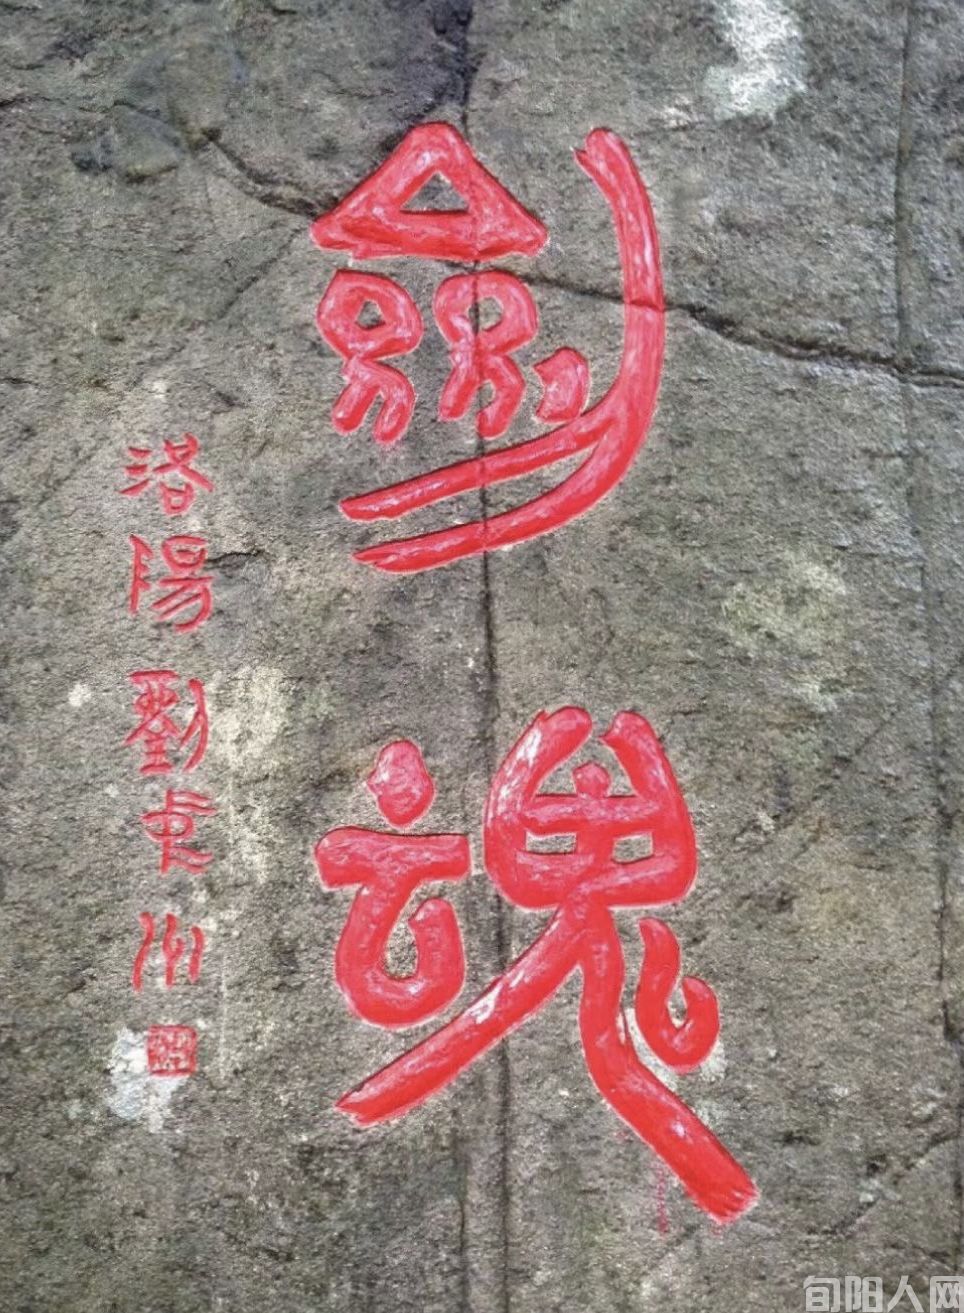 劍魂
洛陽劉虎州
旬阳人网